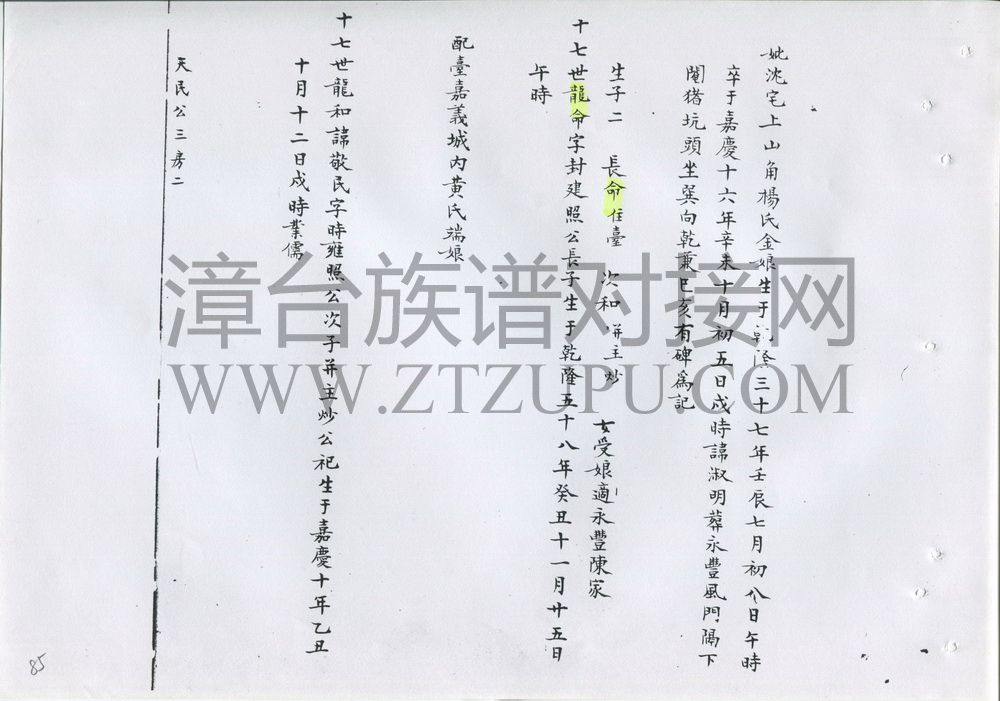 妣沈宅上山角楊氏金娘生于乾隆三十七年壬辰七月初八日午時
卒于嘉慶十六年辛未十月初五日戍時諱淑明葬永豐風門隔下
闖猪坑頭坐巽向乾兼巳亥有碑為記
生子二 長命住臺 次和併主炒 女受娘適永豐陳家
十七世龍命字封建照公長子生于乾隆五十八年癸丑十一月廿五日
午時
配臺嘉義城內黃氏端娘
十七世龍和諱敬民字時雍照公次子并主炒公祀生于嘉慶十年乙丑
十月十二日戍時業儒
天民公三房二
85
漳台族谱对接网
WWW.ZTZUPU.COM